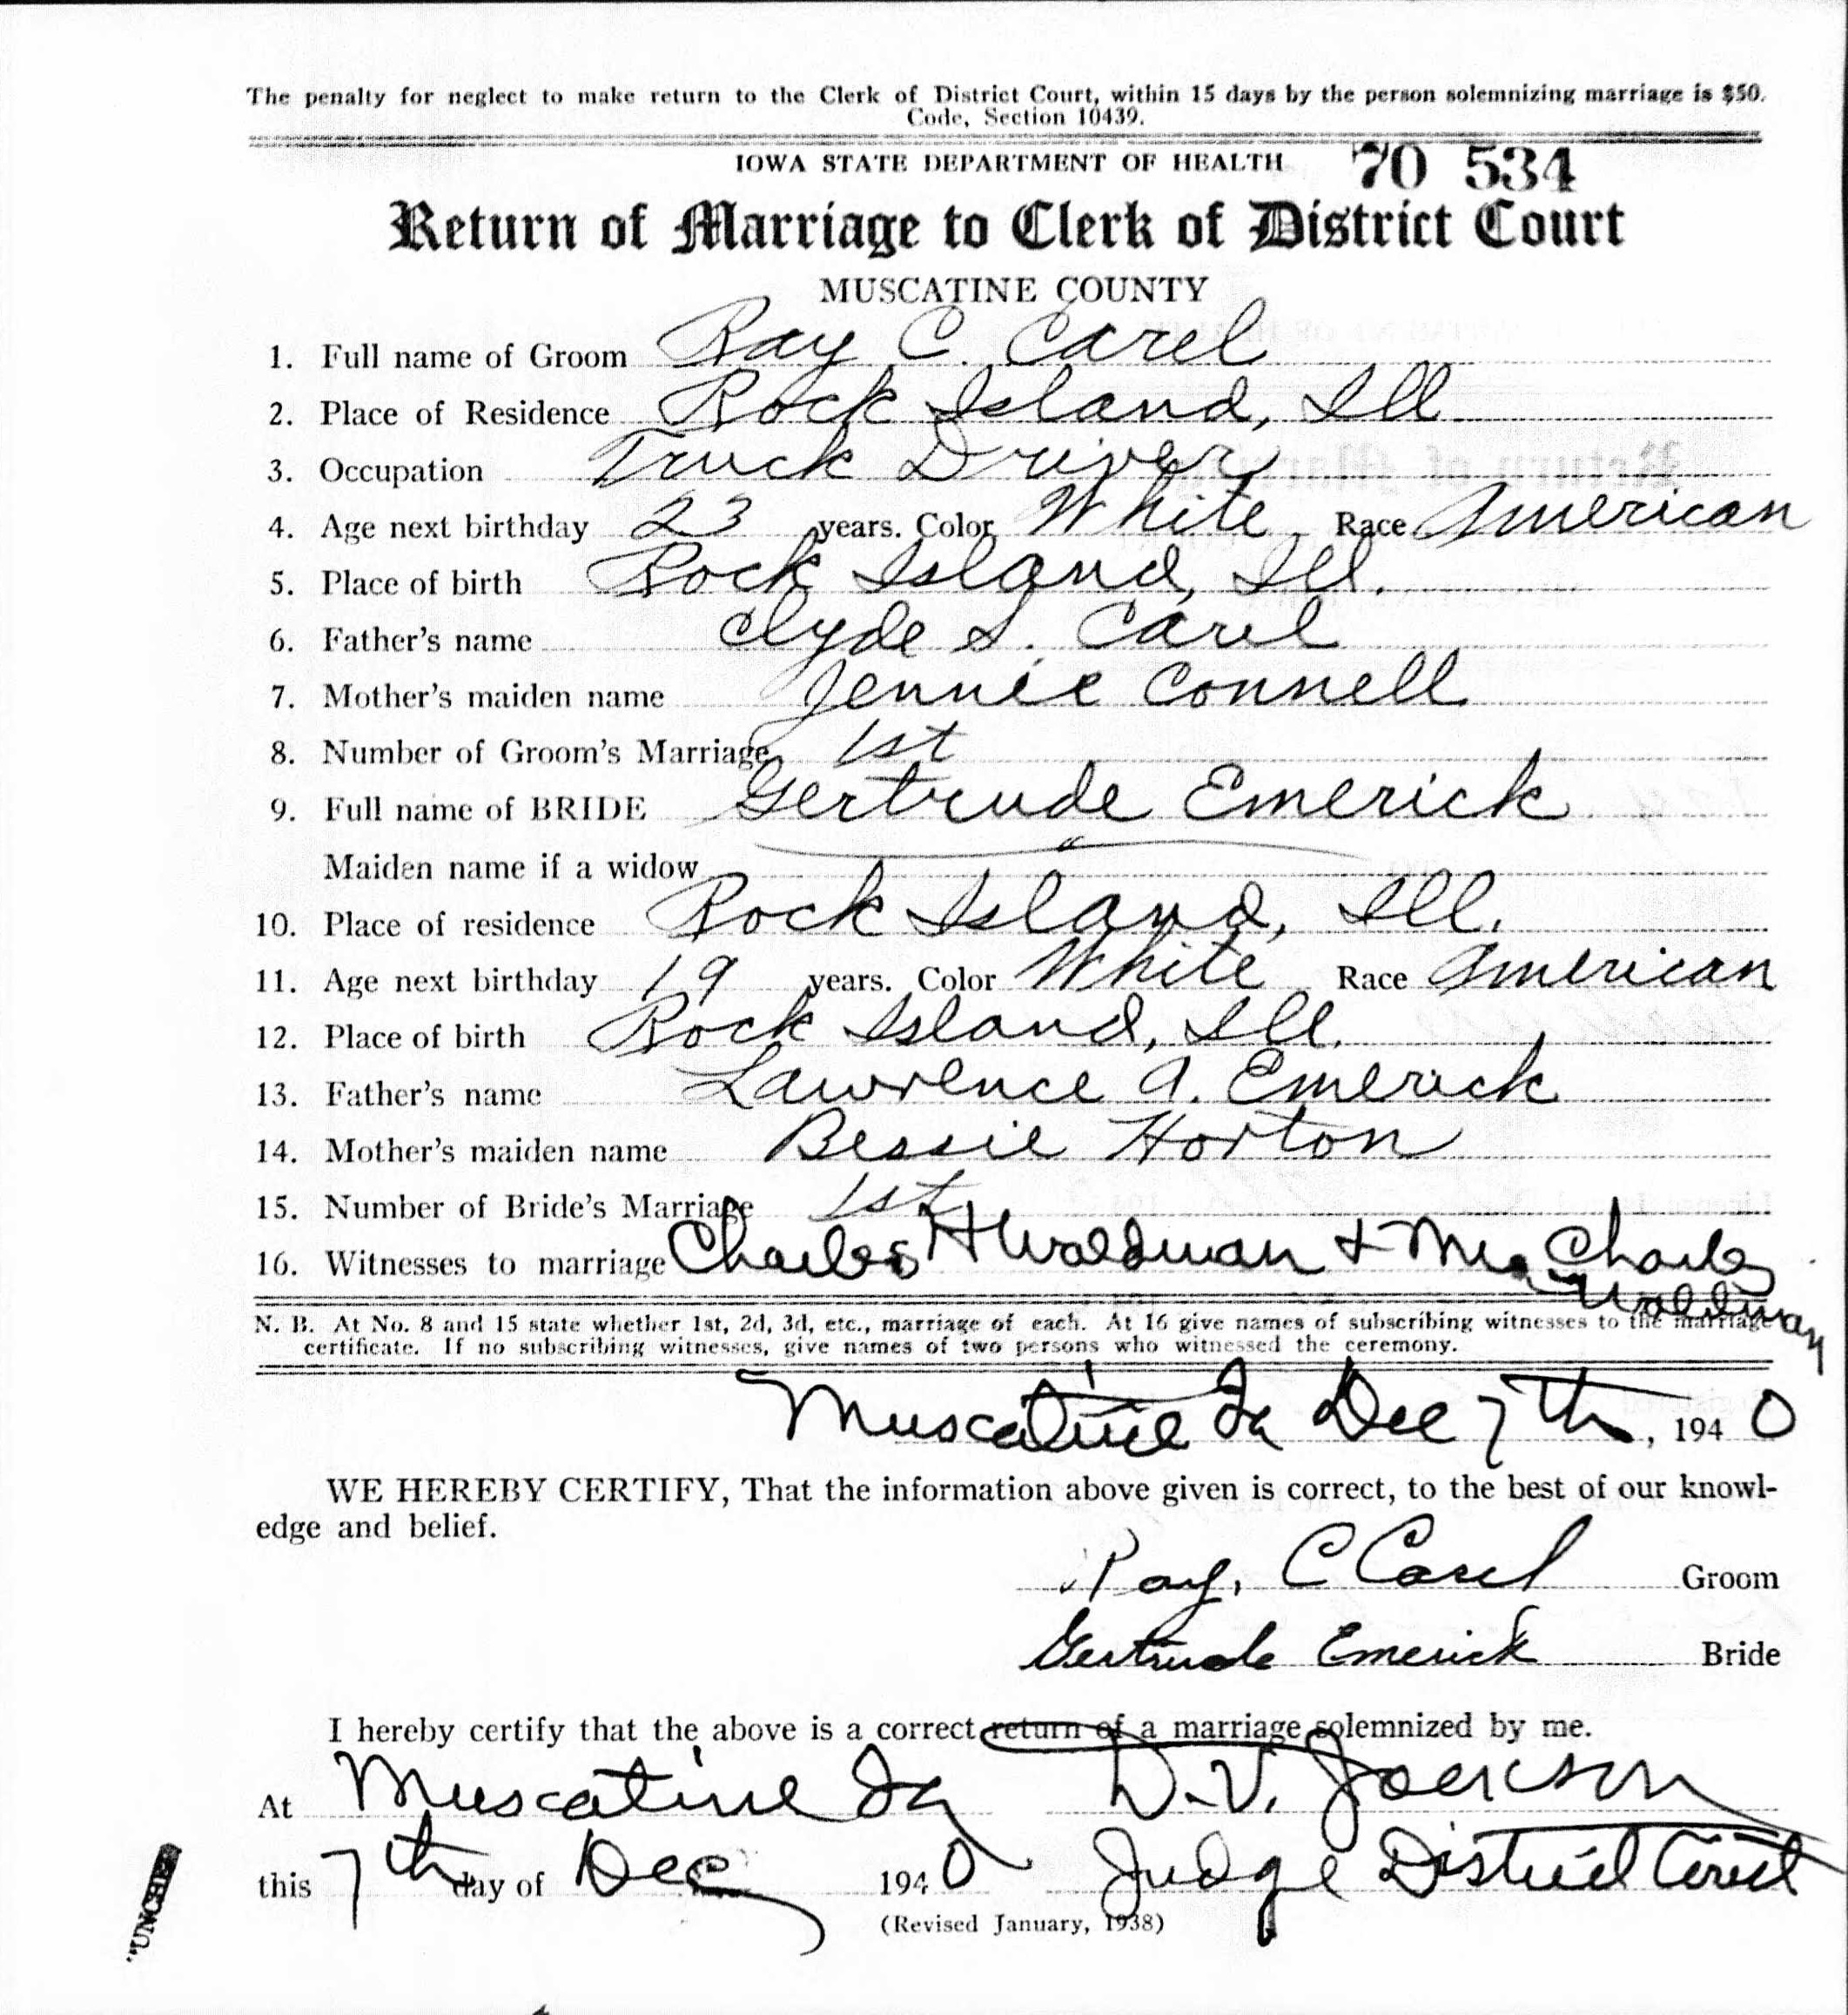 The penalty for neglect to make return to the Clerk of District Court, within 15 days by the person solemnizing marriage is $50.
Code, Section 10439.
IOWA STATE DEPARTMENT OF HEALTH 70 534
Return of Marriage to Clerk of District Court
MUSCATINE COUNTY
1. Full name of Groom Ray C. Carel
2. Place of Residence Rock Island, Ill
3. Occupation Truck Driver
4. Age next birthday 23 years. Color White Race American
5. Place of birth Rock Island, Ill.
6. Father's name Clyde S. Carel
7. Mother's maiden name Jennie Connell
8. Number of Groom's Marriage 1st
9. Full name of BRIDE Gertrude Emerick
Maiden name if a widow
10. Place of residence Rock Island, Ill.
11. Age next birthday 19 years. Color White Race American
12. Place of birth Rock Island, Ill.
13. Father's name Lawrence A. Emerick
14. Mother's maiden name Bessie Horton
15. Number of Bride's Marriage 1st
16. Witnesses to marriage Charles H Waldman + Mrs Charles
Waldman
N. B. At No. 8 and 15 state whether 1st, 2d, 3d, etc., marriage of each. At 16 give names of subscribing witnesses to the marriage
certificate. If no subscribing witnesses, give names of two persons who witnessed the ceremony.
Muscatine Ia Dec 7th, 1940
WE HEREBY CERTIFY, That the information above given is correct, to the best of our knowl-
edge and belief.
Ray, C Carel Groom
Gertrude Emerick Bride
I hereby certify that the above is a correct return of a marriage solemnized by me.
At Muscatine Ia D. V. Jackson
this 7th day of Dec 1940 Judge District Court
(Revised January, 1938)